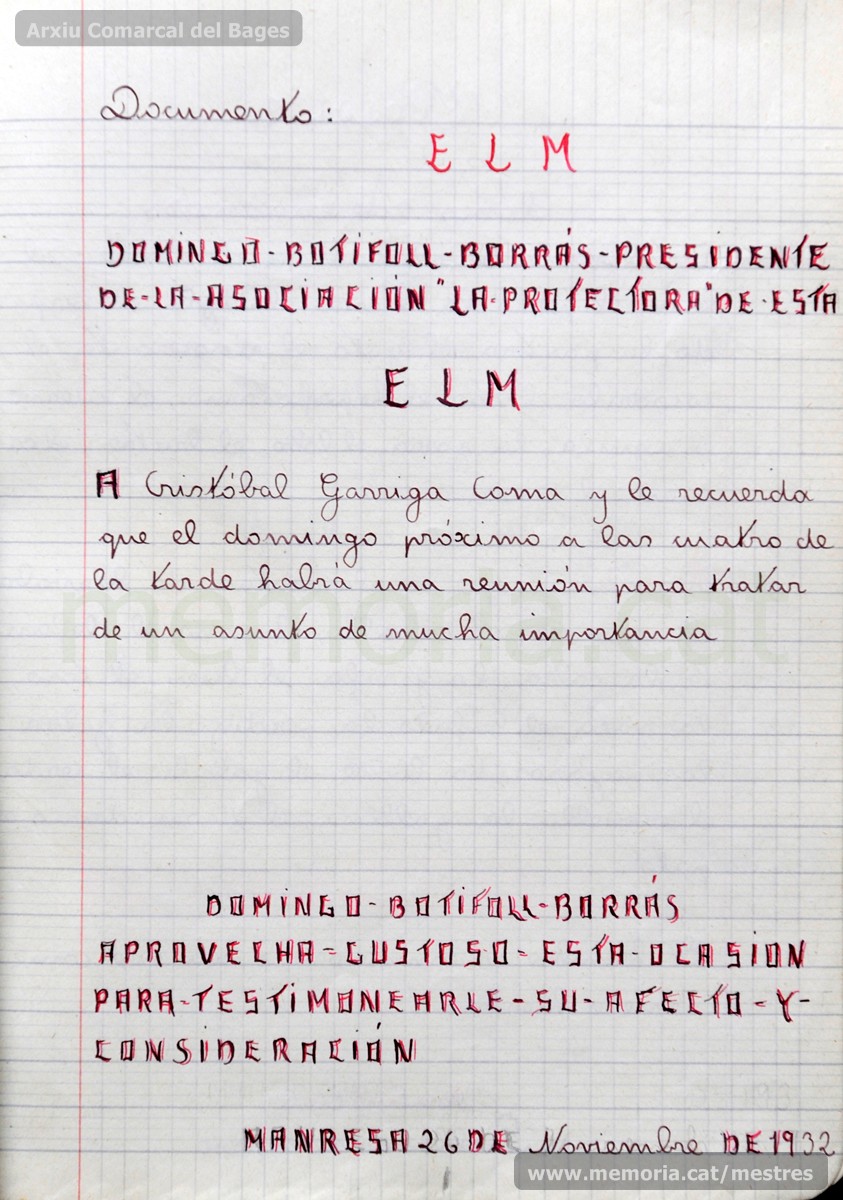 Arxiu Comarcal del Bages
Documento:
E L M
DOMINGO-BOTIFOLL-BORRÁS-PRESIDENTE
DE-LA-ASOCIACIÓN "LA-PROTECTORA" DE-ESTA
E L M
A Cristóbal Garriga Coma y le recuerda
que el domingo próximo a las cuatro de
la tarde habrá una reunión para tratar
de un asunto de mucha importancia
memoria.cat
DOMINGO-BOTIFOLL-BORRÁS
APROVECHA-GUSTOSO-ESTA-OCASION
PARA-TESTIMONEARLE-SU-AFECTO-Y-
CONSIDERACIÓN
MANRESA 26 DE Noviembre DE 1932
www.memoria.cat/mestres